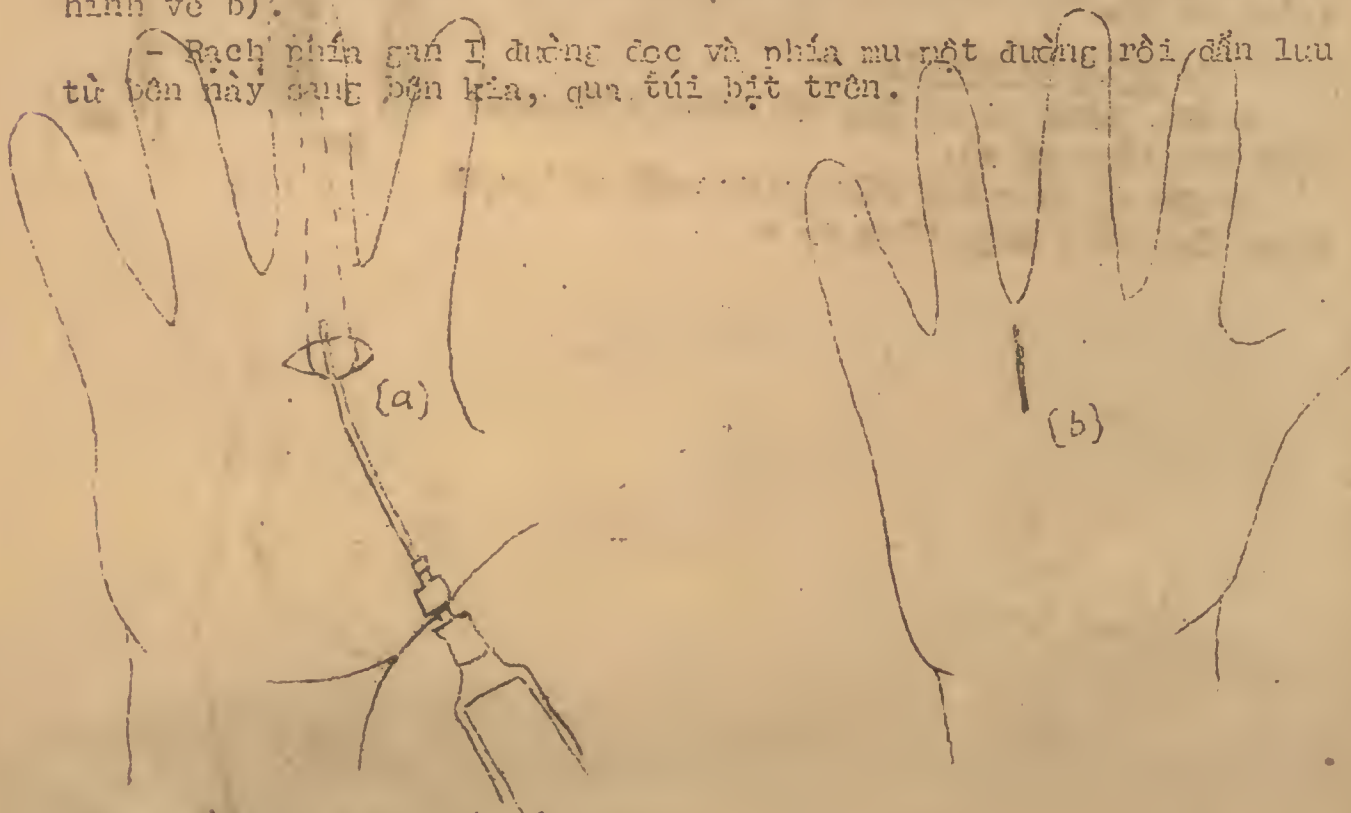 hình vẽ b).
- Rạch phía gan I đường dọc và phía mu một đường rồi dẫn lưu
từ bên này sang bên kia, qua túi bịt trên.
(a)
(b)